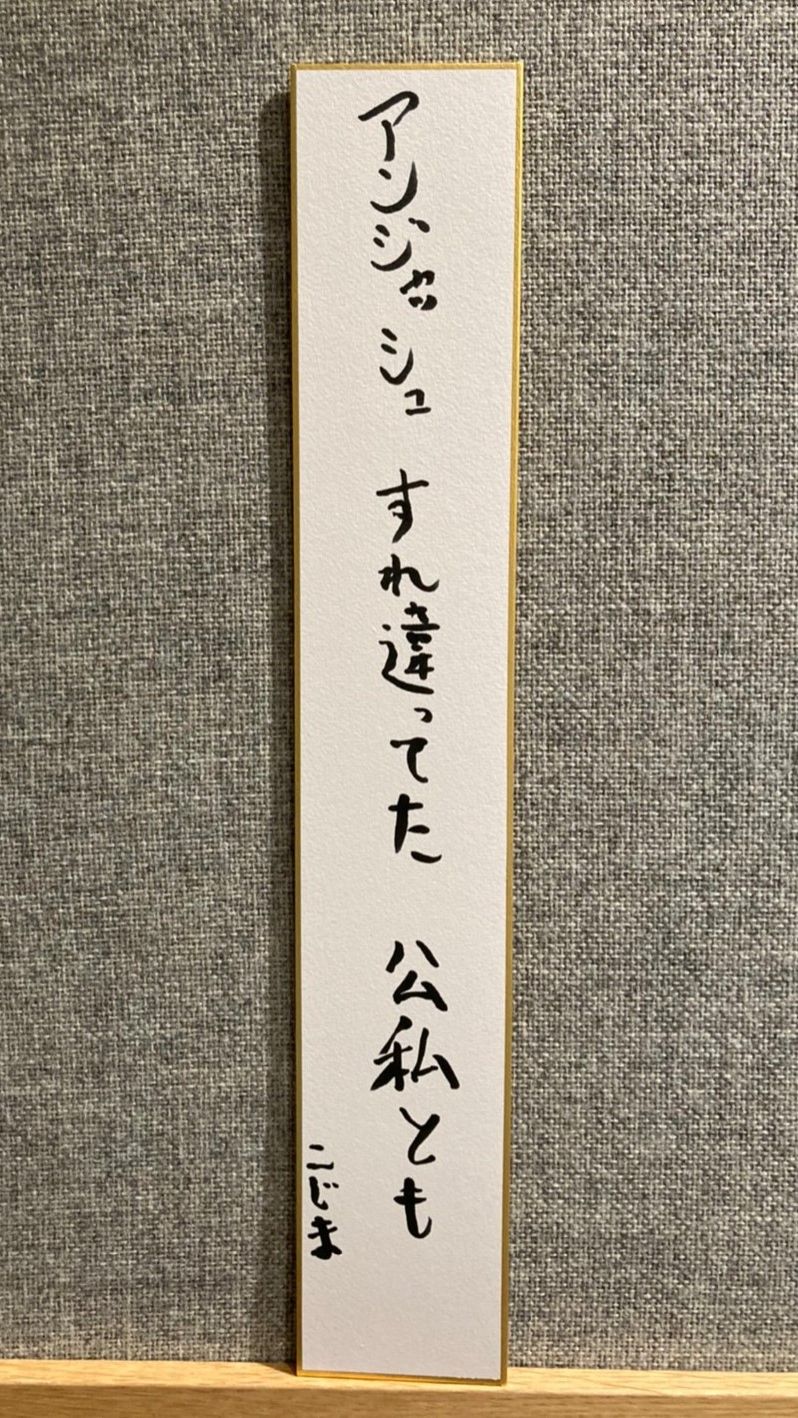 アンジャッシュ すれ違ってた 公私とも
こじま